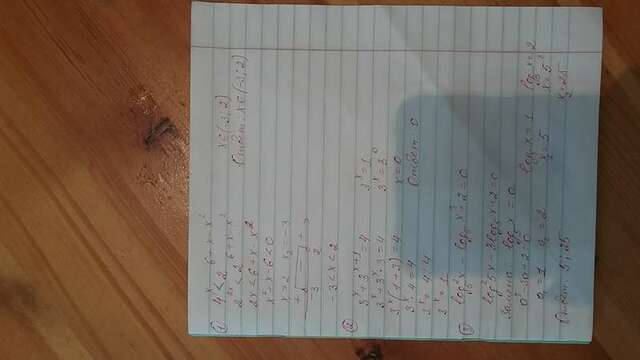 ① 4ˣ < 2⁶⁺ˣ⁻ˣ²
2²ˣ < 2⁶⁺ˣ⁻ˣ²
2x < 6 + x - x²
x² + x - 6 < 0
x = 2 x₂ = -3
+ - +
-3 2
-3 < x < 2
x ∈ (-3; 2)
Ответ: x ∈ (-3; 2)
②
3ˣ + 3ˣ⁺¹ = 4
3ˣ + 3ˣ · 3 = 4
3ˣ (1 + 3) = 4
3ˣ · 4 = 4
3ˣ = 4 : 4
3ˣ = 1
3ˣ = 1
3ˣ = 3⁰
x = 0
Ответ: 0
③ log₅²x - log₅x³ + 2 = 0
log²5x - 3log₅x + 2 = 0
Замена log₅x = a
a² - 3a + 2 = 0
a₁ = 1 a₂ = 2
log₅x = 1
x₁ = 5
log₅x = 2
x = 5²
x₂ = 25
Ответ 5; 25